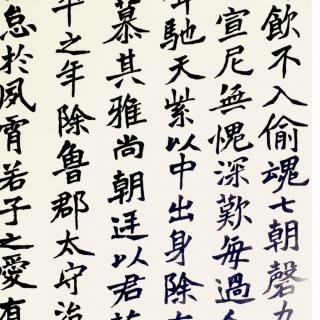 飲不入偷魂七朝磬
宣尼無愧深歎每過
馳天紫以中出身除
慕其雅尚朝廷以君
之年除魯郡太守治
怠於夙霄若子之愛有